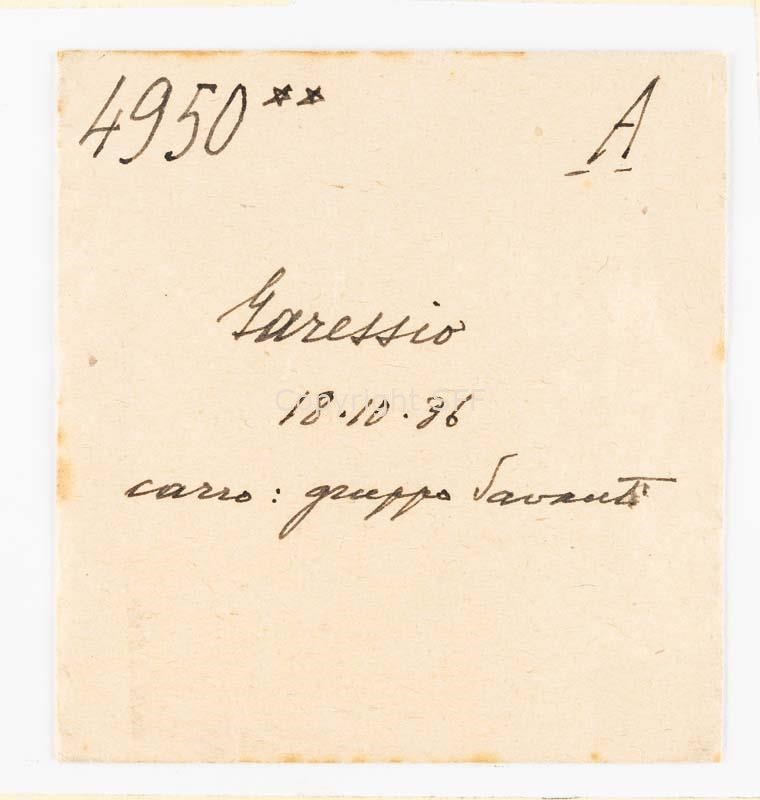 4950** A
Garessio
Copyright SFF
18.10.36
carro: gruppo Savanti